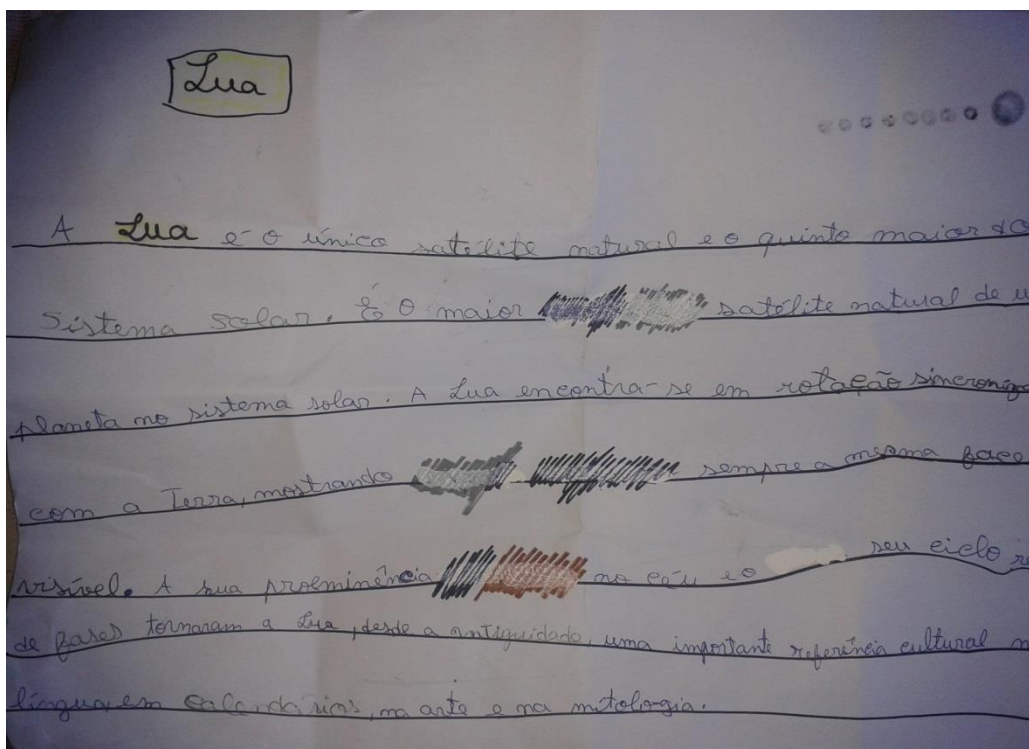 Lua
A Lua é o único satélite natural e o quinto maior do
Sistema solar. É o maior satélite natural de u
planeta no sistema solar. A Lua encontra-se em rotação sincroniza
com a Terra, mostrando sempre a mesma face
visível. A sua prolminência no céu e o seu ciclo r
de fases tornaram a Lua, desde a antiguidade, uma importante referência cultural n
língua, em calendários, na arte e na mitologia.